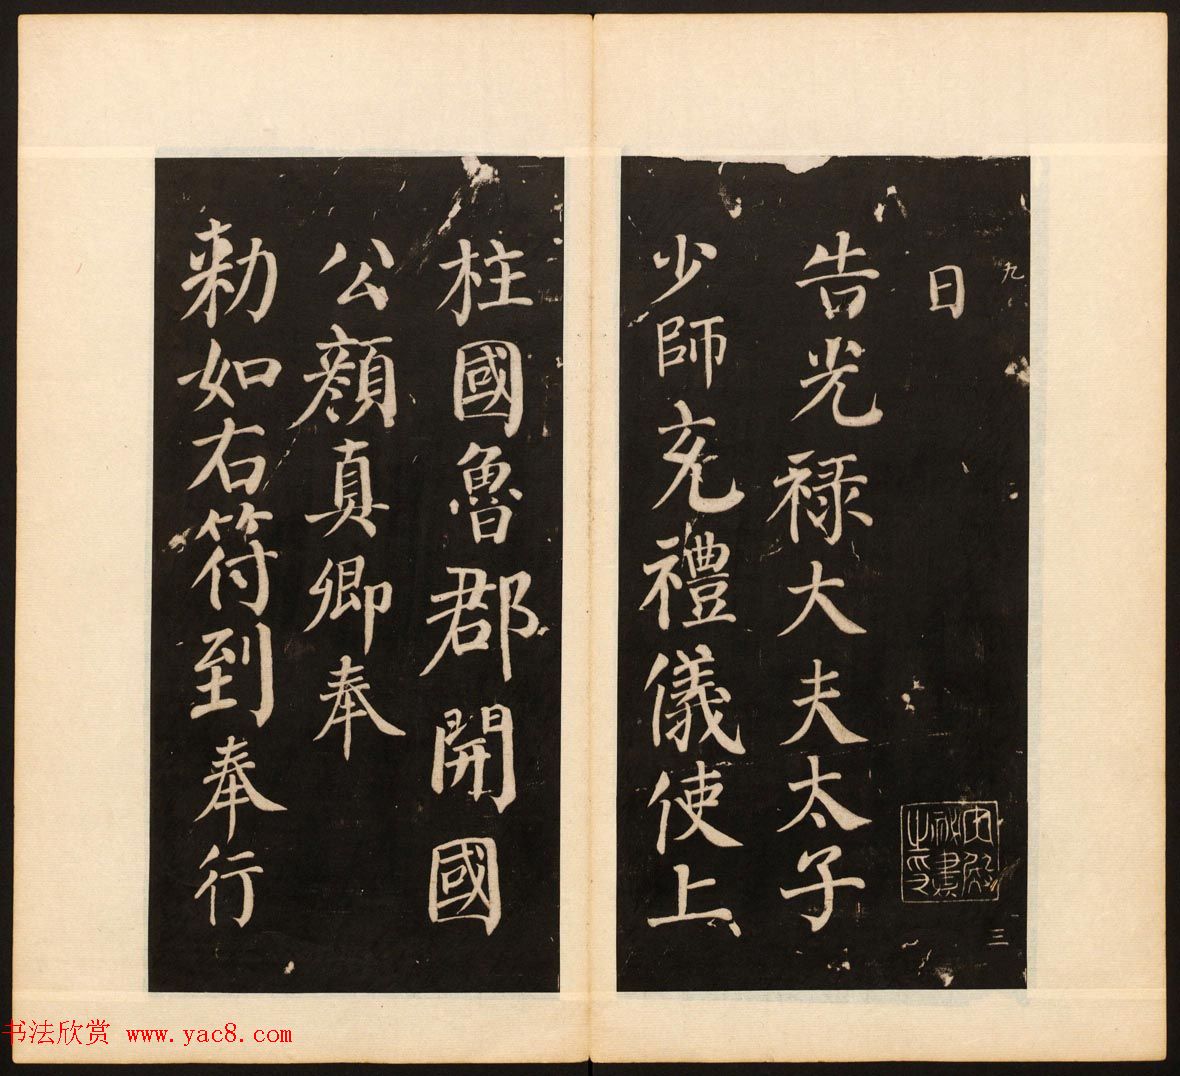 九
日
告光禄大夫太子
少師充禮儀使上
柱國魯郡開國
公顔真卿奉
勑如右符到奉行
三
书法欣赏 www.yac8.com